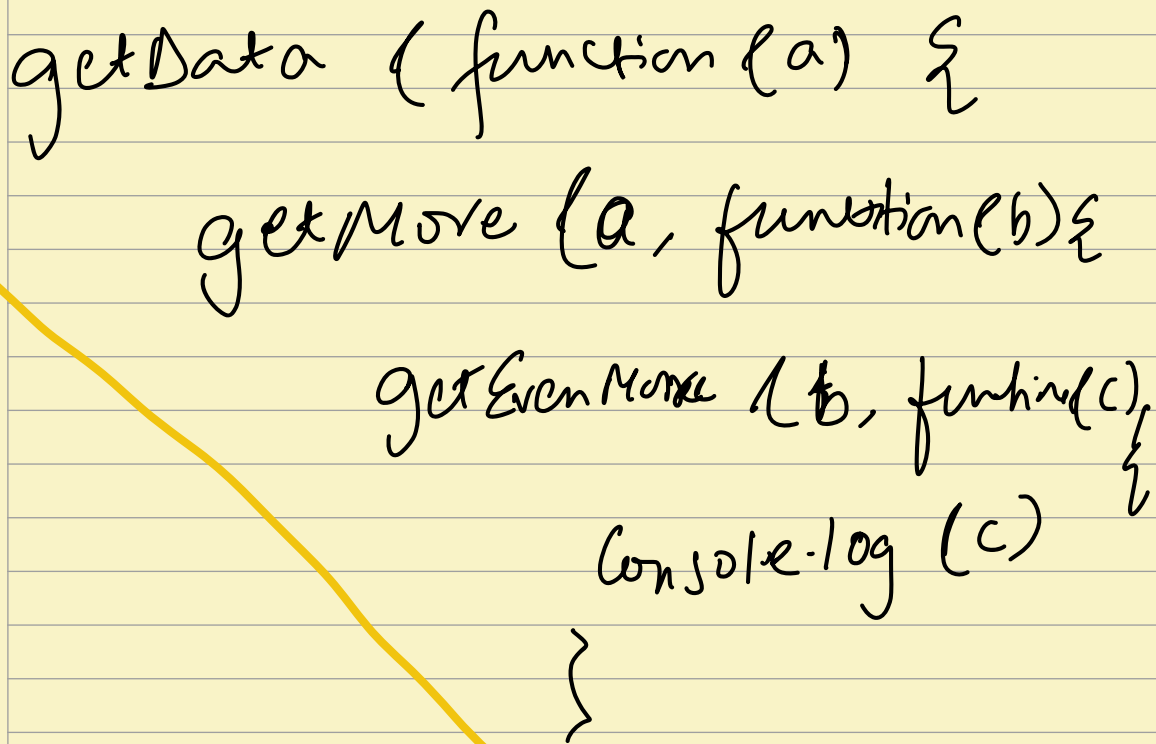 getData (function(a) {
getMore (a, function(b){
getEvenMore (b, function(c)
{
console.log (c)
}